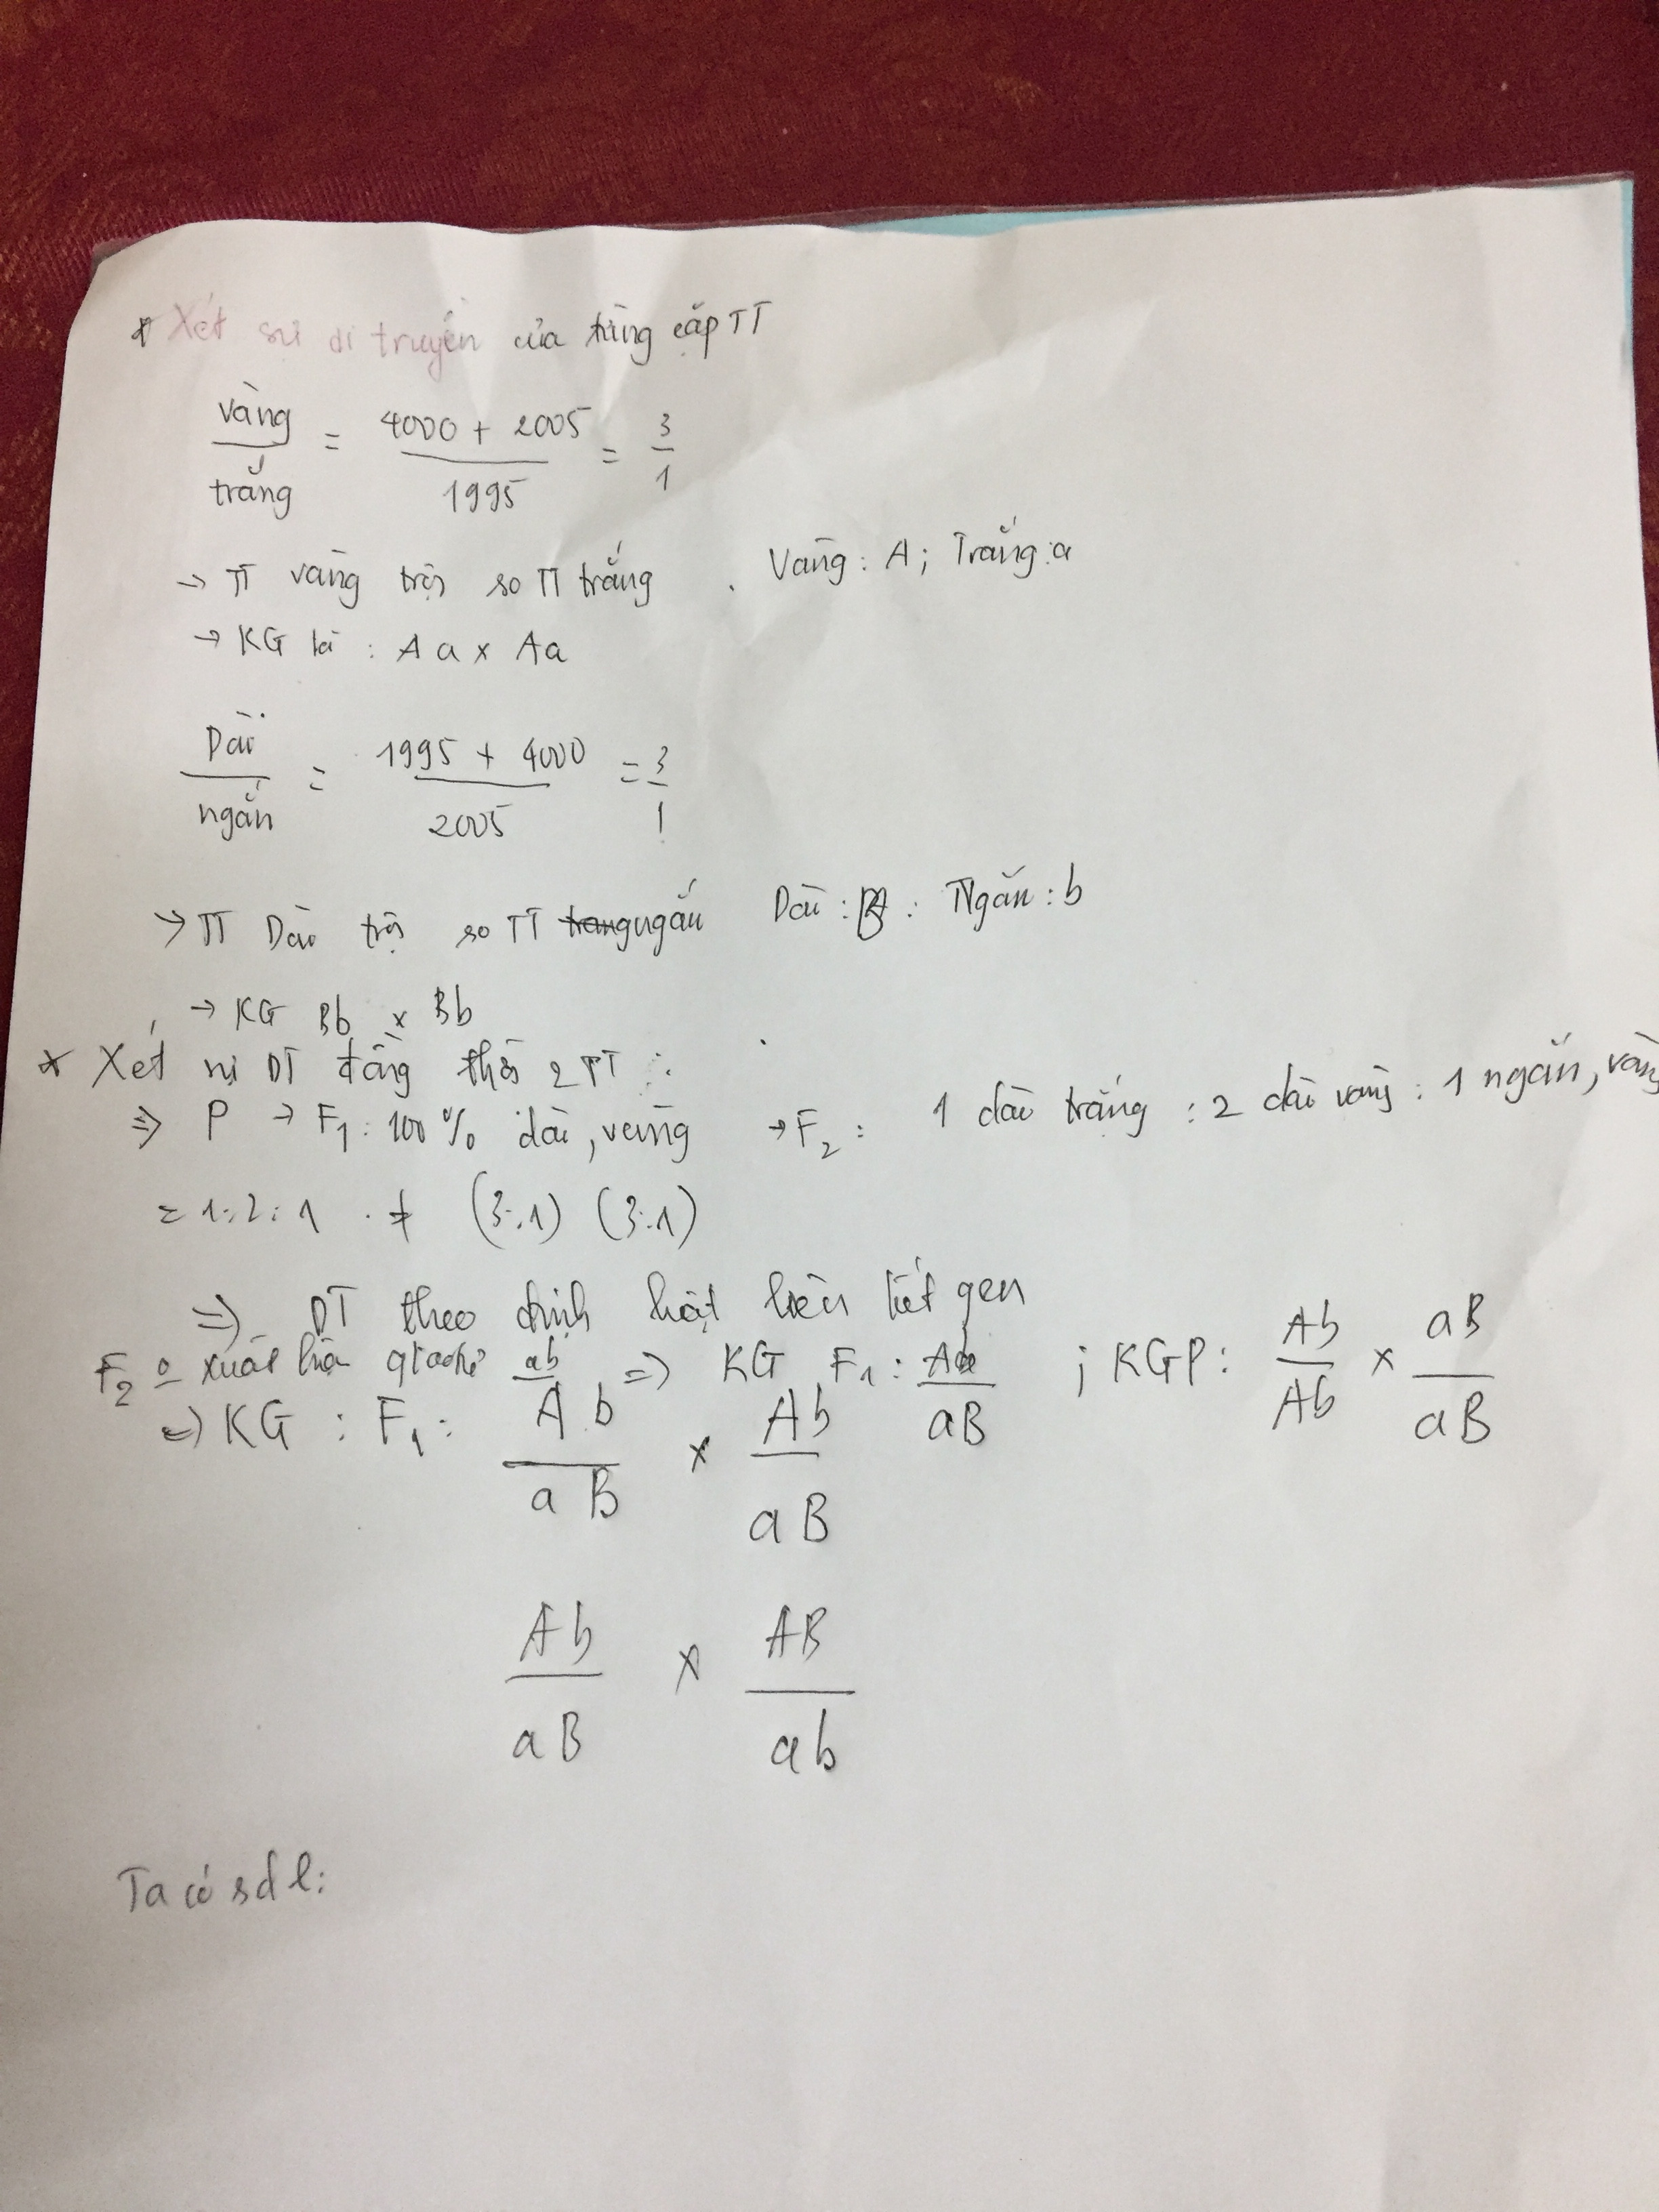 * Xét sự di truyền của từng cặp TT
vàng / trắng = 4000 + 2005 / 1995 = 3/1
→ TT vàng trội so TT trắng . Vàng : A ; Trắng : a
→ KG là : Aa x Aa
Dài / ngắn = 1995 + 4000 / 2005 = 3/1
→ TT Dài trội so TT ngắn Dài : B : Ngắn : b
→ KG Bb x Bb
* Xét sự DT đồng thời 2 TT :
⇒ P → F1 : 100% dài, vàng → F2 : 1 dài trắng : 2 dài vàng : 1 ngắn, vàng
= 1:2:1 ≠ (3:1) (3:1)
⇒ DT theo định luật liên kết gen
F2 xuất hiện ab ⇒ KG F1 : Ab / aB ; KGP : Ab / Ab x aB / aB
⇒ KG : F1 : Ab / aB x Ab / aB
Ab / aB x AB / ab
Ta có sđl :